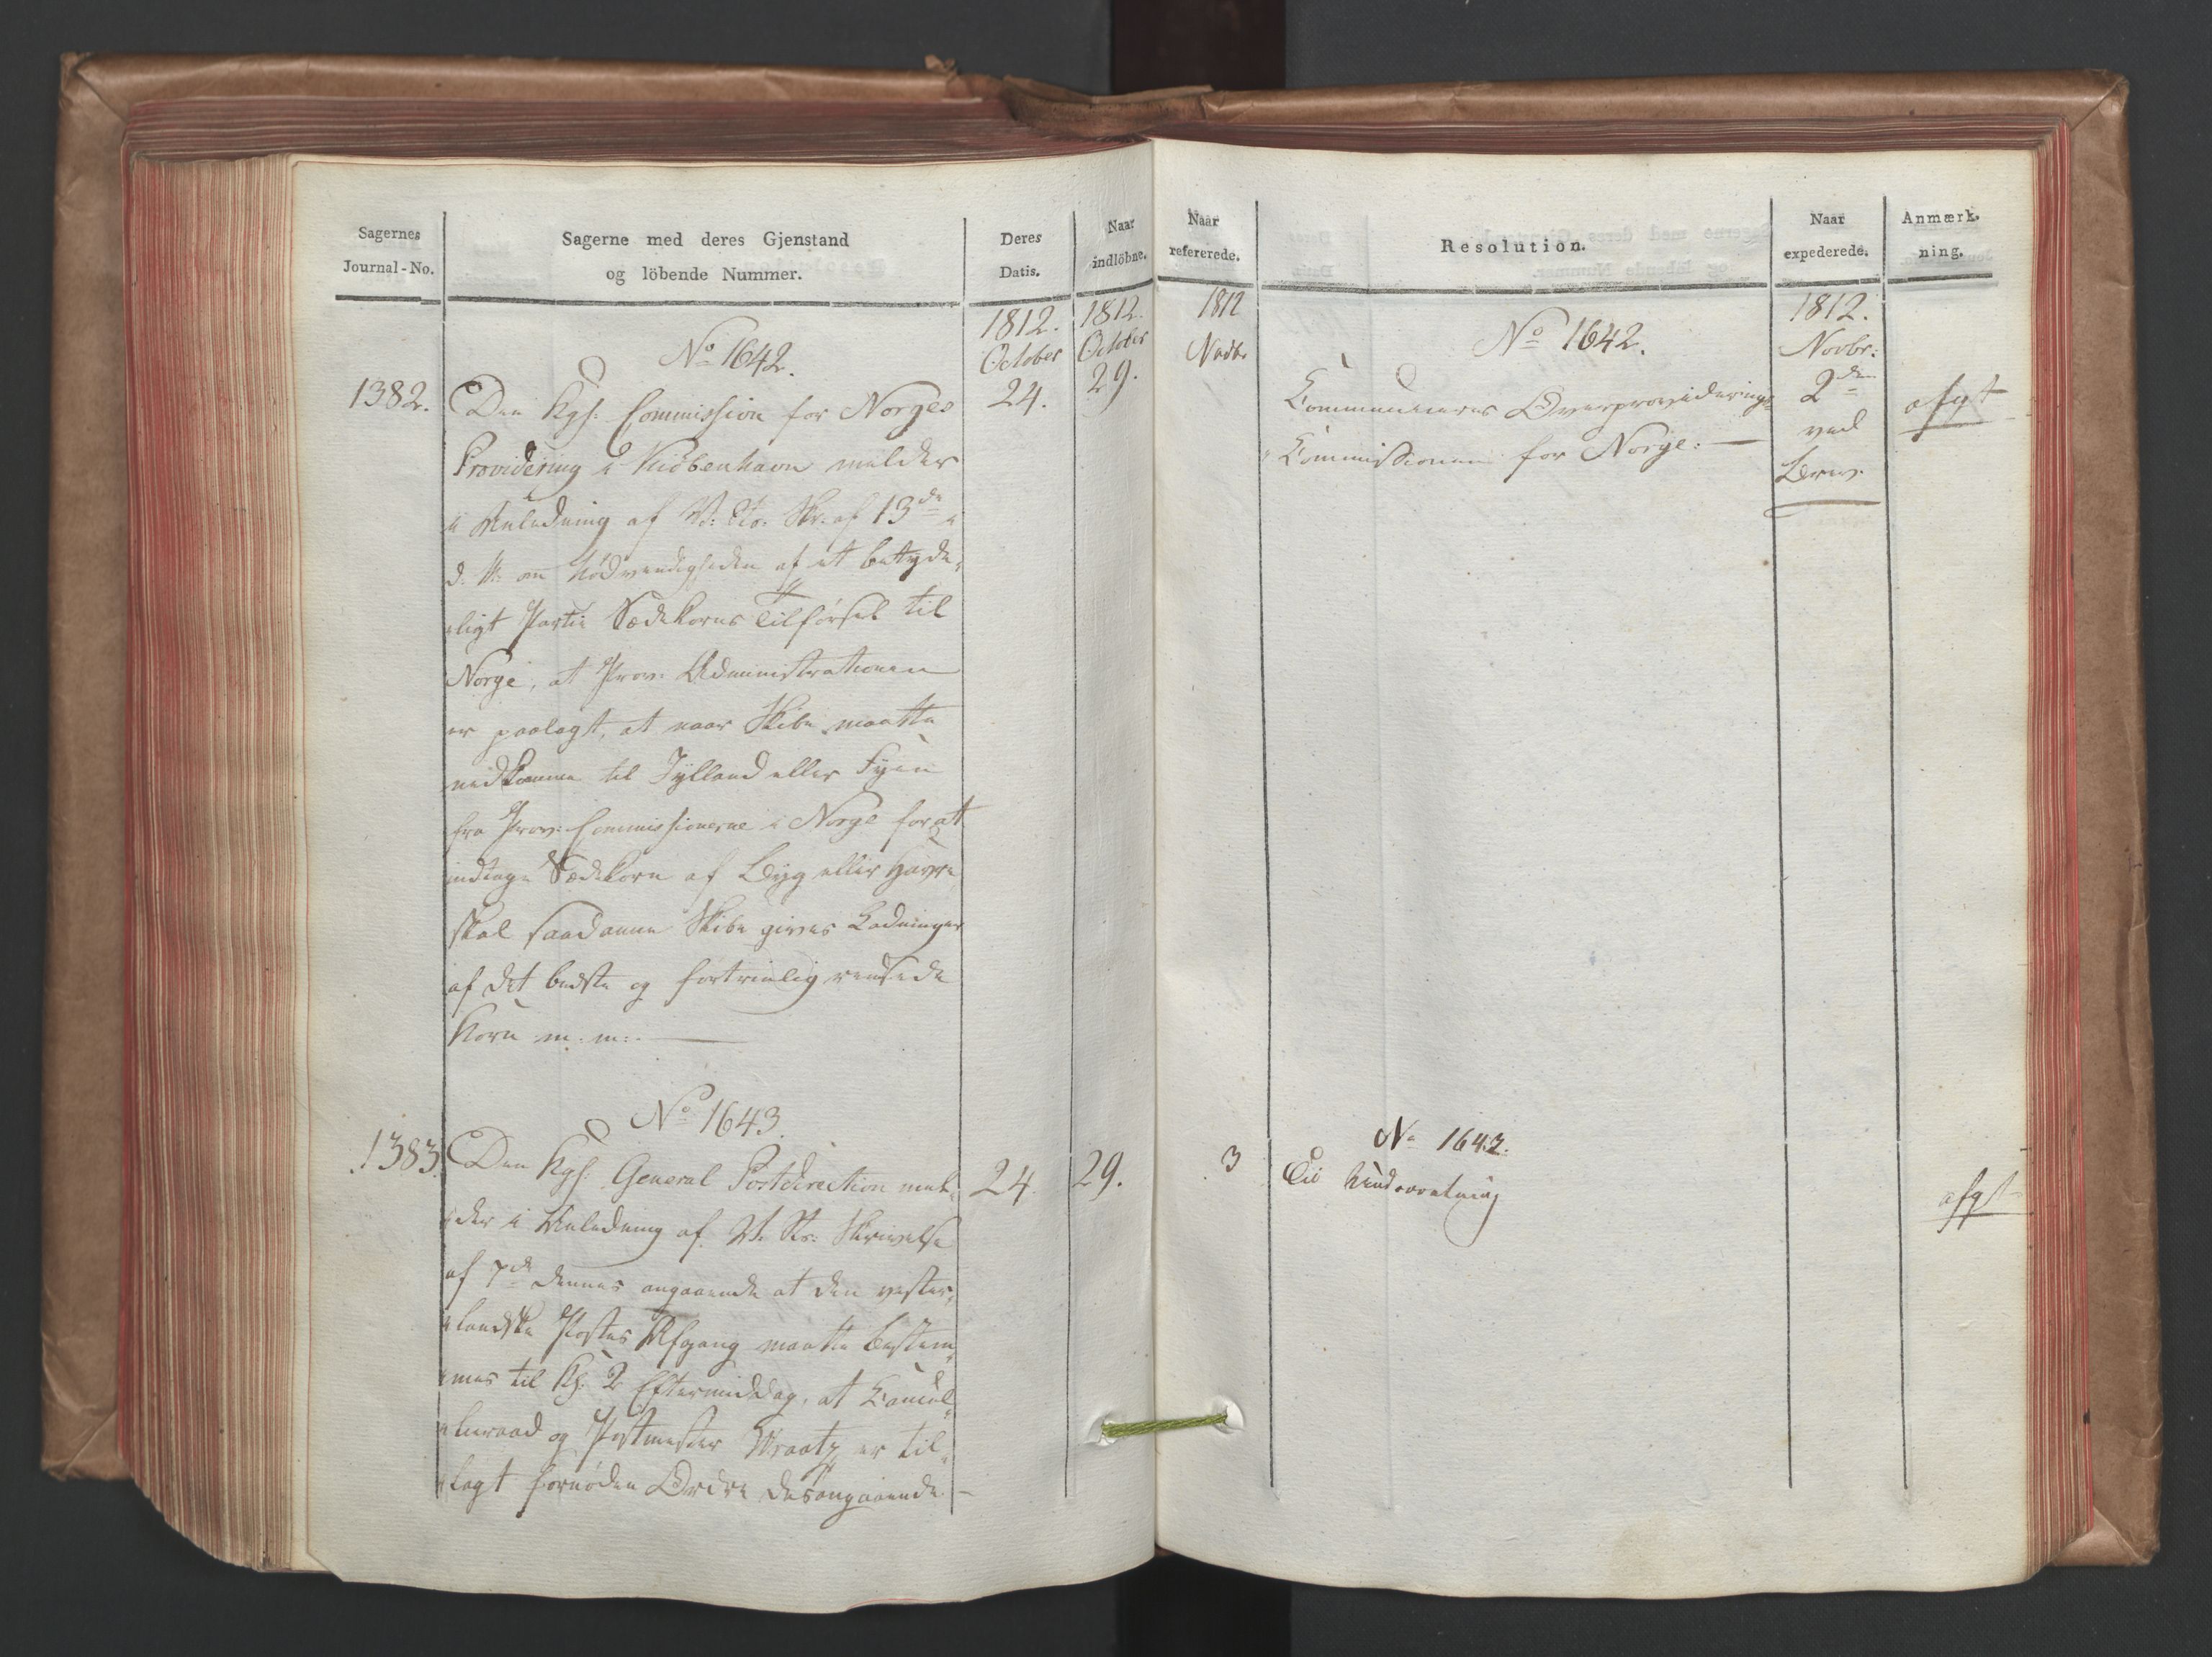 Sagernes
Journal-No.
Sagerne med deres Gjenstand
og löbende Nummer.
Deres
Datis.
Naar
indlöbne.
1812.
October
1812.
October
No 1642.
1382.
Den Kgl: Commission for Norges
24.
29.
Providering i Kiöbenhavn melder
i Anledning af V: Skr. af 13de
d. M: om Nödvendigheden af et betyde-
ligt Partie Sædekorns Tilførsel til
Norge, at Prov: Administrationen
er paalagt, at naar Skibe maatte
nedkomme til Jylland eller Fyen
fra Prov: Commissionerne i Norge for at
indtage Sædekorn af Byg eller Havre
skal saadanne Skibe gives Ladninger
af det bedste og fortrinlig rensede
Korn m: m:
No 1643.
1383.
Den Kgl: General Postdirection mel-
24
29.
der i Anledning af V. Skrivelse
af 7de dennes angaaende at den vester-
landske Postes Afgang maatte bestem-
mes til Kl: 2 Eftermiddag, at Cancel-
lieraad og Postmester Wraatz er til-
lagt fornøden Ordre desangaaende.
Naar
refererede.
Resolution.
Naar
expederede.
Anmærk-
ning.
1812
Novbr
No 1642.
1812.
Novbr:
Communiceres Overproviderings-
2den
afgt
Commissionen for Norge.
ved
Brev.
No 1643.
3
Til Underretning
afgt